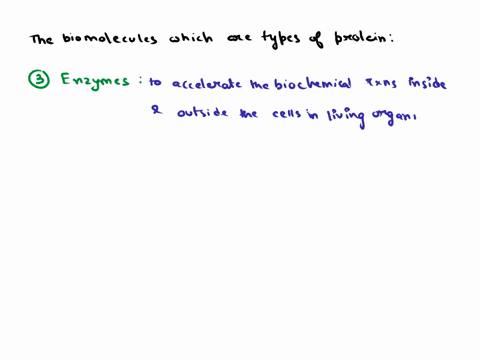 The biomolecules which are types of protein:
③ Enzymes : to accelerate the biochemical rxns inside
& outside the cells in living organi